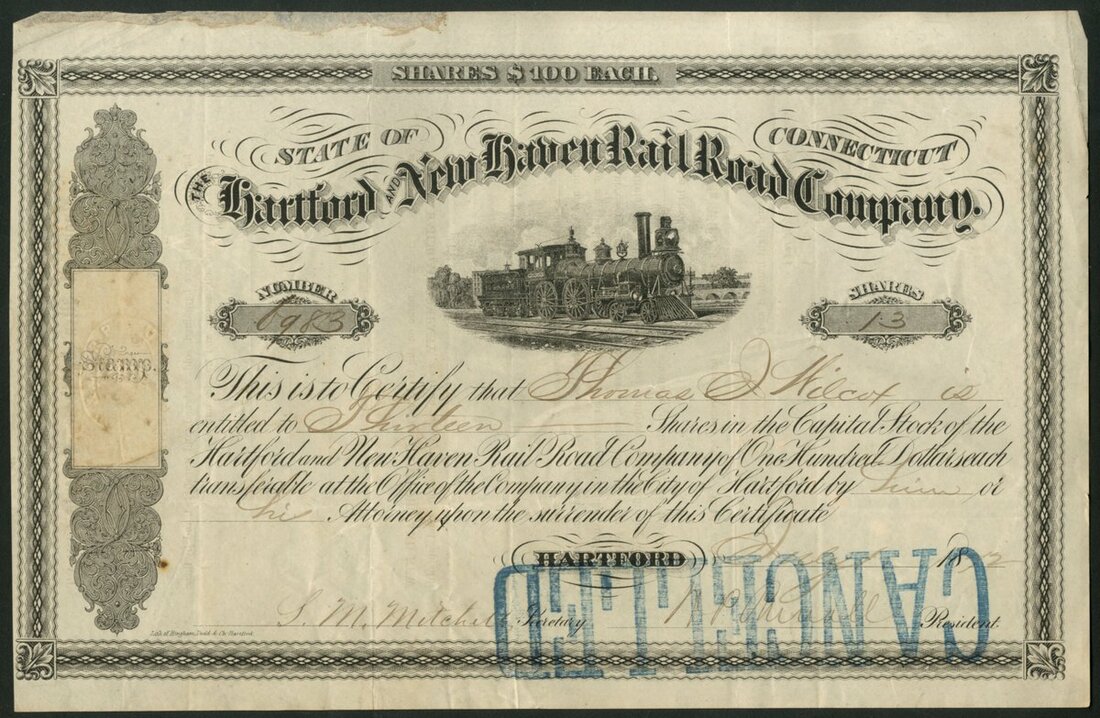 SHARES $100 EACH.
STATE OF CONNECTICUT
THE Hartford AND New Haven Rail Road Company.
NUMBER
6983
SHARES
13
Stamp.
This is to Certify that Thomas J Wilcox is
entitled to Thirteen Shares in the Capital Stock of the
Hartford and New Haven Rail Road Company of One Hundred Dollars each
transferable at the Office of the Company in the City of Hartford by him or
his Attorney upon the surrender of this Certificate
HARTFORD 18
S. M. Mitchell Secretary President.
Lith. of Bingham, Dodd & Co. Hartford.
CANCELLED